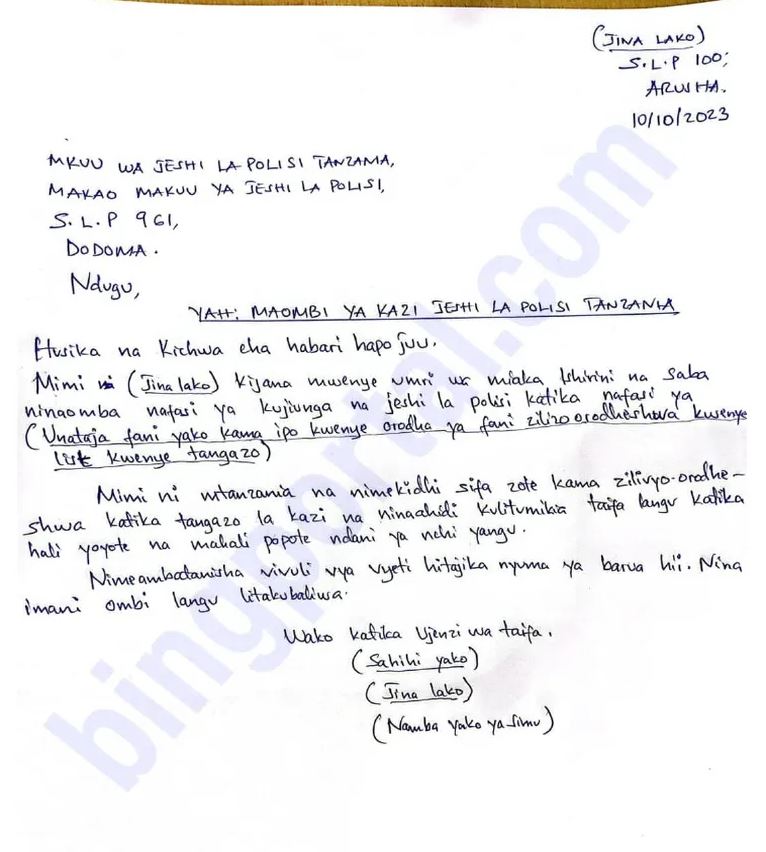 (JINA LAKO)
S.L.P 100;
ARUSHA.
10/10/2023
MKUU WA JESHI LA POLISI TANZANIA,
MAKAO MAKUU YA JESHI LA POLISI,
S.L.P 961,
DODOMA.
Ndugu,
YAH: MAOMBI YA KAZI JESHI LA POLISI TANZANIA
Husika na Kichwa cha habari hapo juu.
Mimi ni (Jina lako) kijana mwenye umri wa miaka Ishirini na saba
ninaomba nafasi ya kujiunga na jeshi la polisi katika nafasi ya
(Unataja fani yako kama ipo kwenye orodha ya fani zilizoorodheshwa kwenye
list kwenye tangazo)
Mimi ni mtanzania na nimekidhi sifa zote kama zilivyo-orodhe-
shwa katika tangazo la kazi na ninaahidi kulitumikia taifa langu katika
hali yoyote na mahali popote ndani ya nchi yangu.
Nimeambatanisha vivuli vya vyeti hitajika nyuma ya barua hii. Nina
imani ombi langu litakubaliwa.
Wako katika Ujenzi wa taifa.
(Sahihi yako)
(Jina lako)
(Namba yako ya simu)
bingportal.com